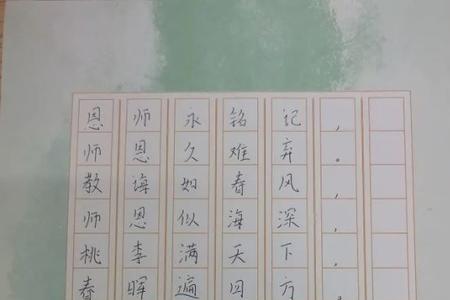 恩师永铭记，
师恩久难弃。
教诲如春风，
师恩似海深，
桃李满天下，
春晖遍四方